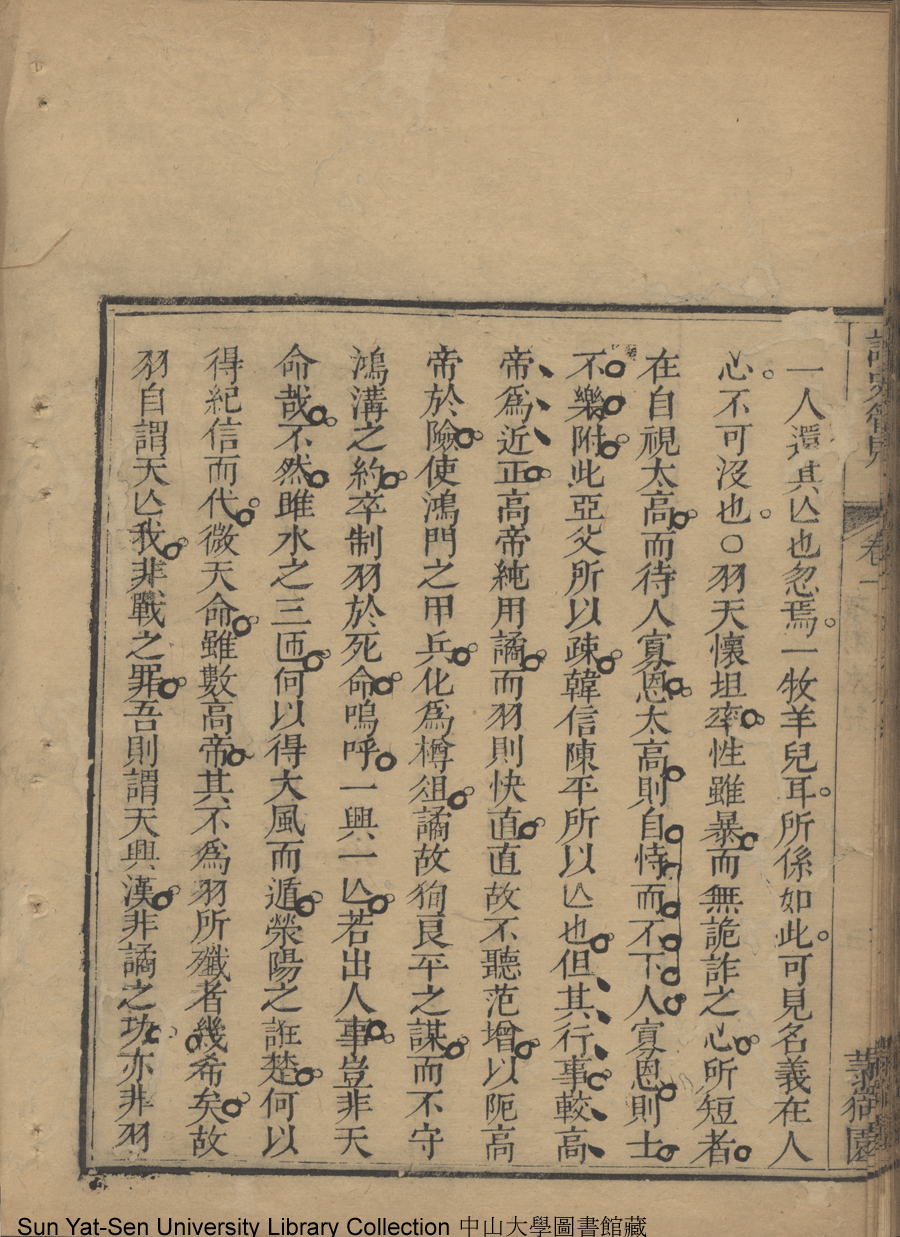 讀史管見
卷一
一人還其亾也忽焉一牧羊兒耳所係如此可見名義在人
心不可沒也○羽天懷坦率性雖暴而無詭詐之心所短者
在自視太高而待人寡恩太高則自恃而不下人寡恩則士
不樂附此亞父所以疎韓信陳平所以亾也但其行事較高
帝爲近正高帝純用譎而羽則快直直故不聽范增以阨高
帝於險使鴻門之甲兵化爲樽俎譎故狥良平之謀而不守
鴻溝之約卒制羽於死命嗚呼一興一亾若出人事豈非天
命哉不然睢水之三匝何以得大風而遁滎陽之誑楚何以
得紀信而代微天命雖數高帝其不爲羽所殲者幾希矣故
羽自謂天亾我非戰之罪吾則謂天興漢非譎之功亦非羽
Sun Yat-Sen University Library Collection 中山大學圖書館藏